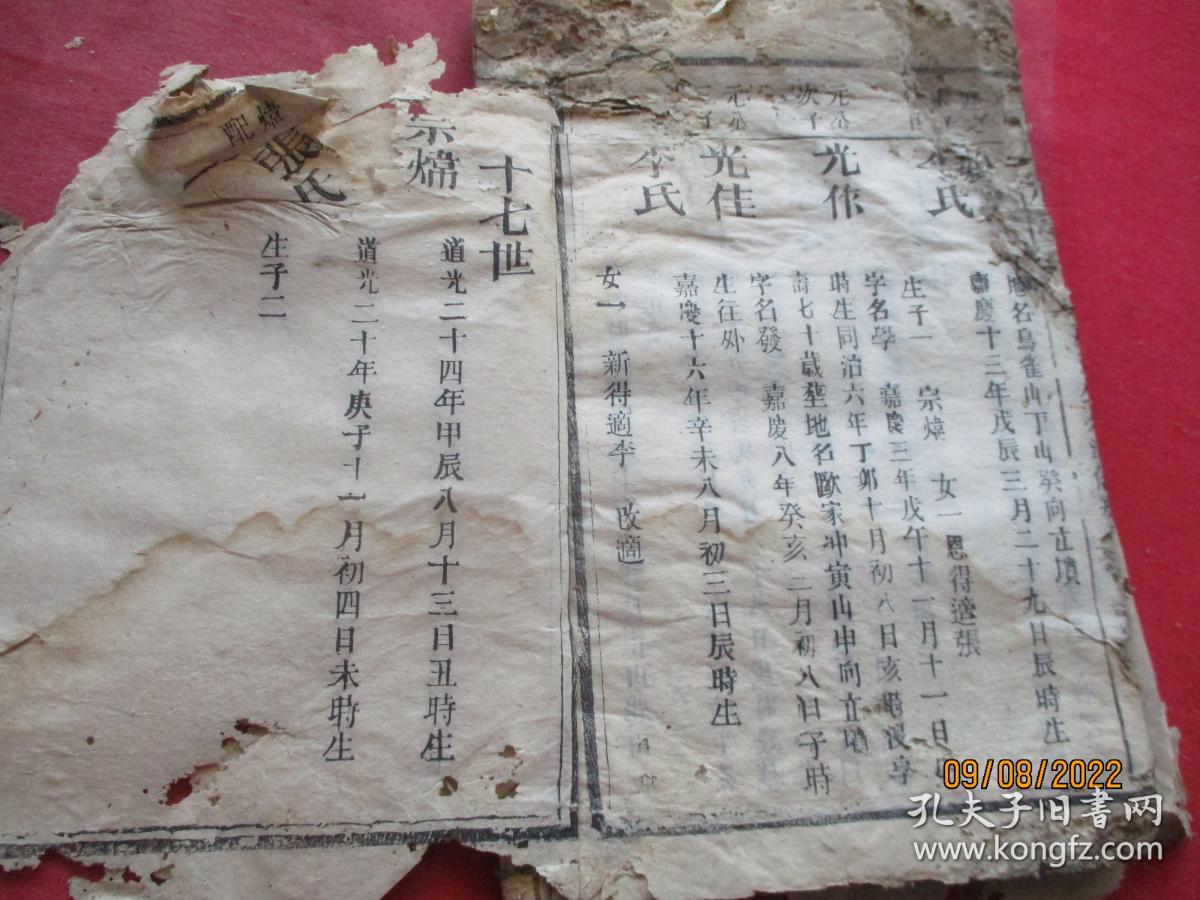 地名烏雀山丁山癸向立墳
嘉慶十三年戊辰三月二十九日辰時生
氏
生子一 宗煒 女一 恩得適張
元公
次子
光作
字名學 嘉慶三年戊午十二月十一日
時生同治六年丁卯十月初八日亥時沒享
壽七十歲塟地名歐家冲寅山申向立墳
元公
子
光佳
字名發 嘉慶八年癸亥二月初八日子時
生往外
李氏
嘉慶十六年辛未八月初三日辰時生
女一 新得適李 改適
十七世
宗煒
道光二十四年甲辰八月十三日丑時生
煒
配
張氏
道光二十年庚子十一月初四日未時生
生子二
09/08/2022
孔夫子旧書网
www.kongfz.com